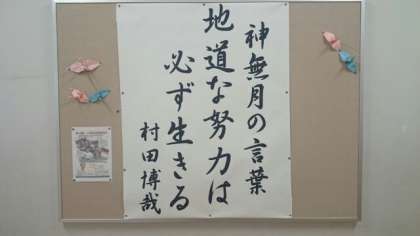 神無月の言葉
地道な努力は
必ず生きる
村田博哉